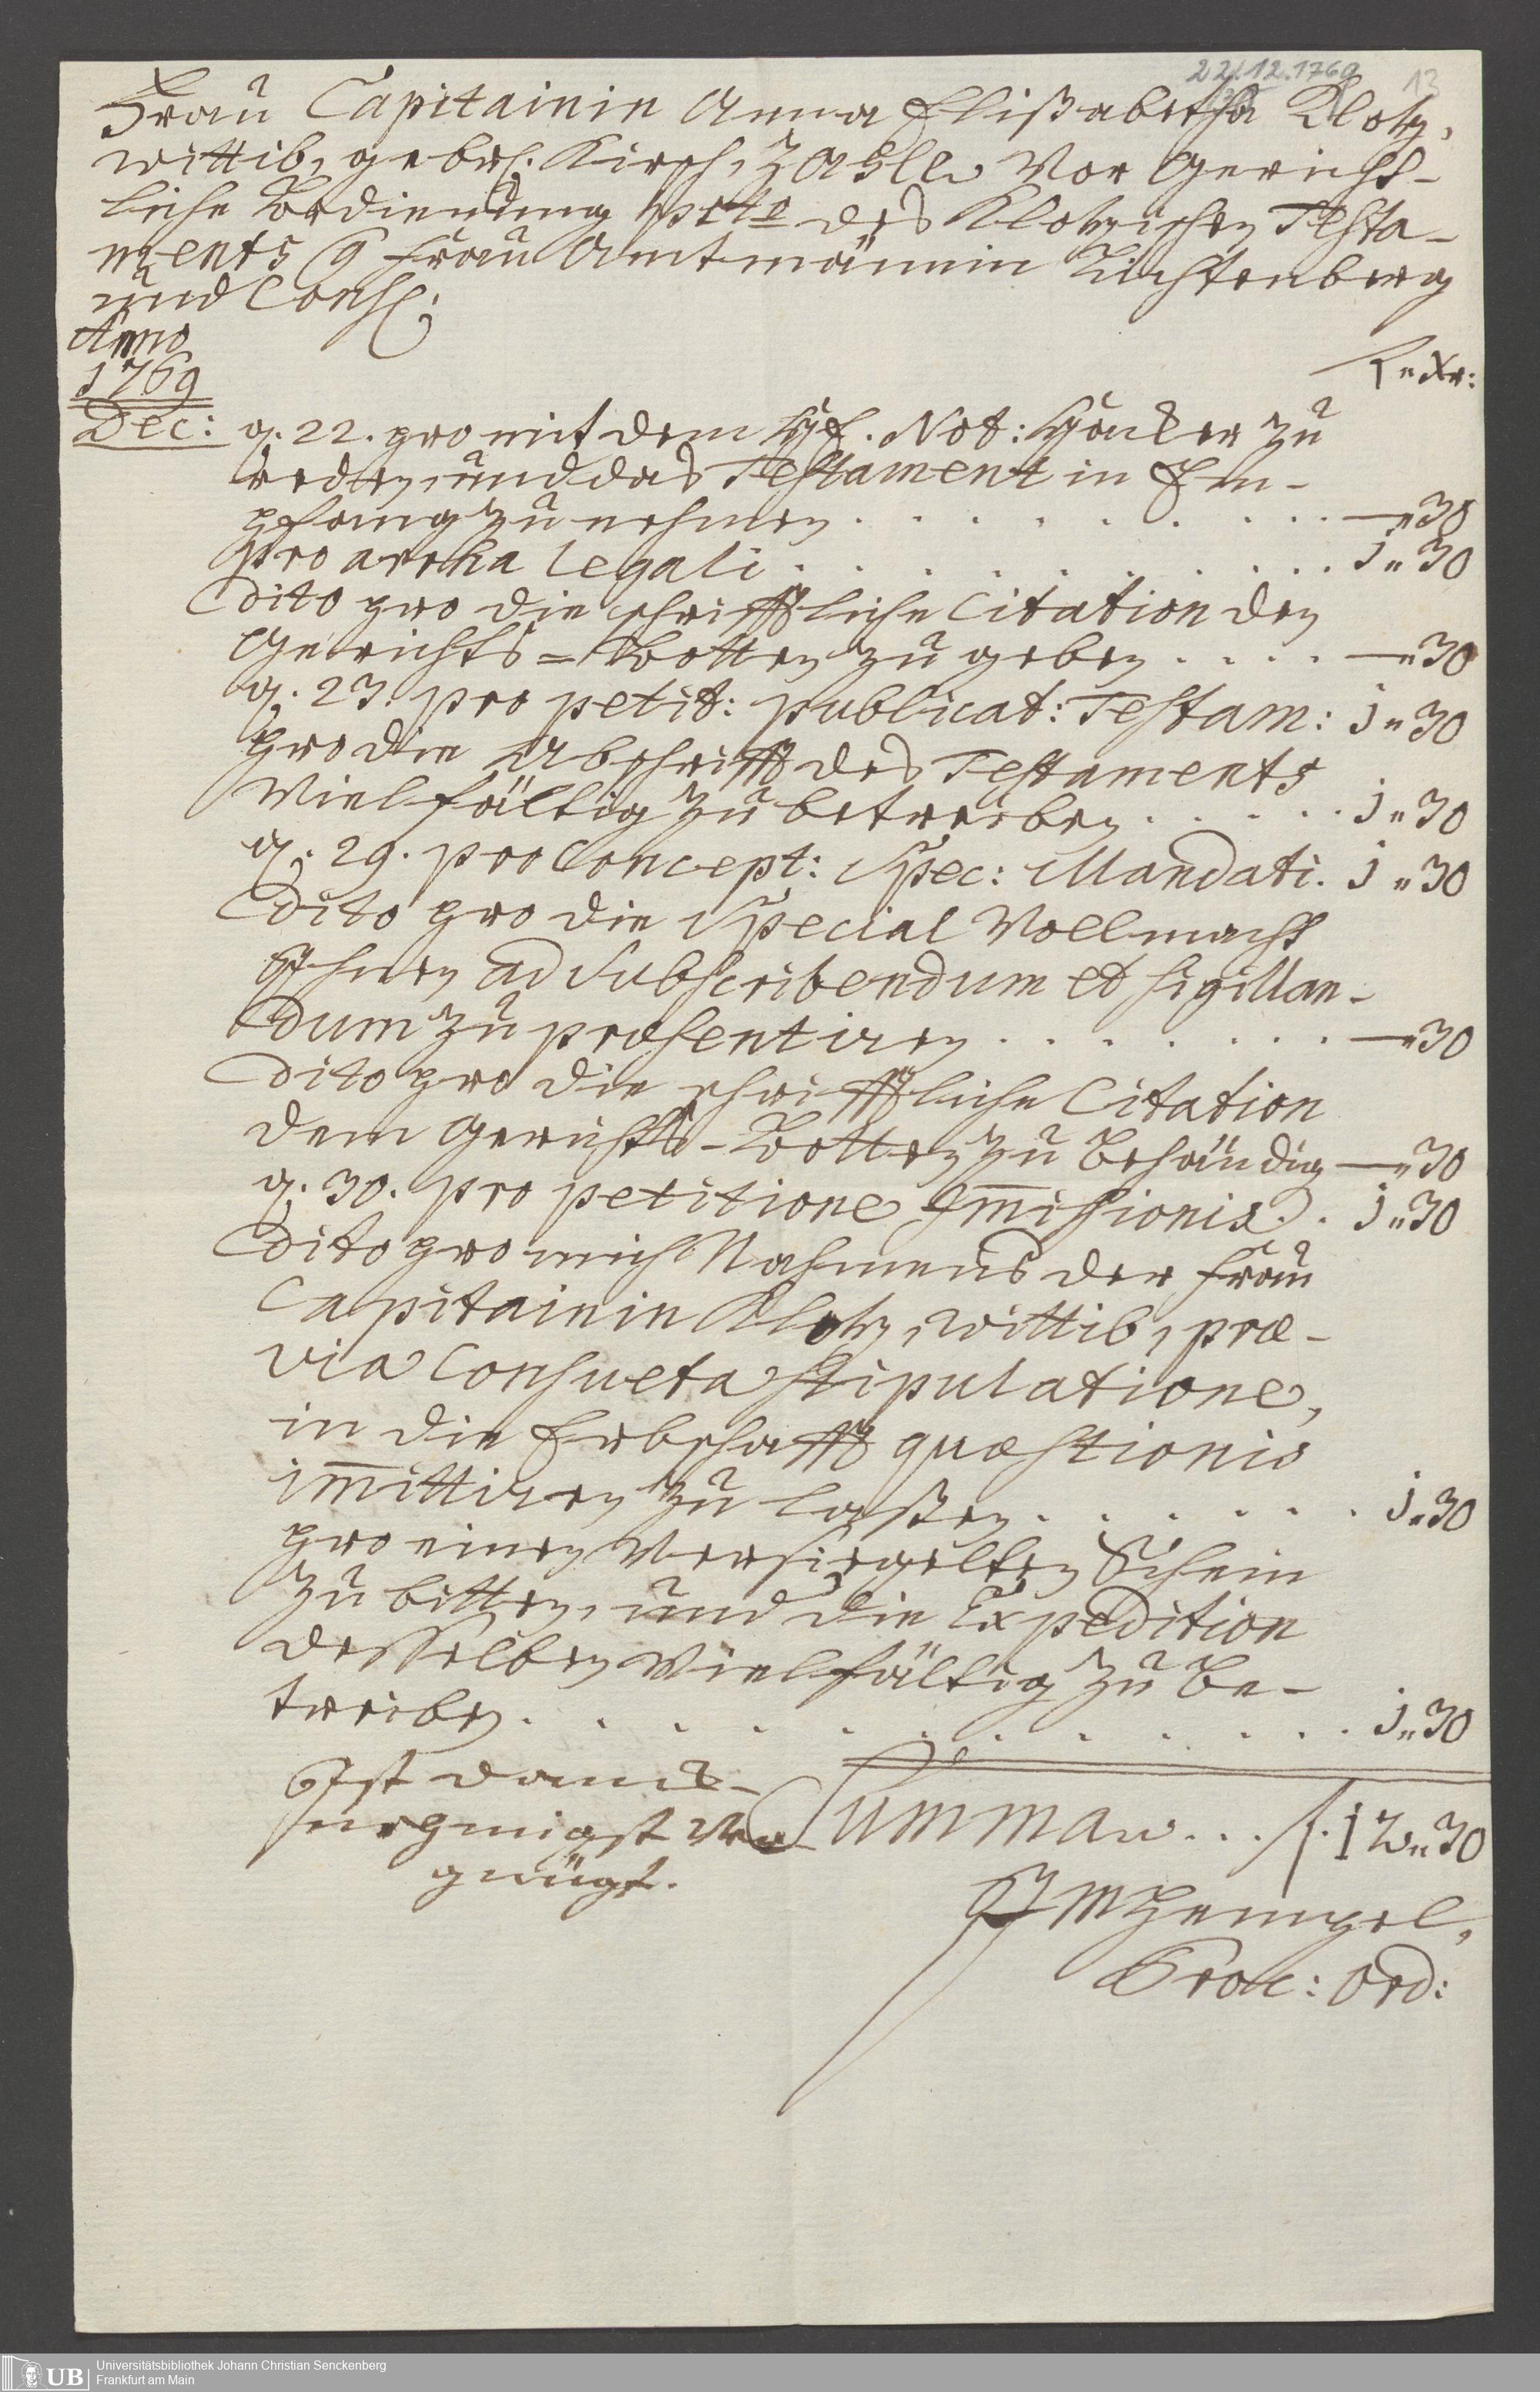 22.12.1769
13
Frau Capitainin Anna Elißabetha Klotz,
wittib, gebrh. Kirsch, Zahle Vor Gericht-
liche Bedienung pcto des Klotzischen Testa-
ments Frau Amtmännin Lichtenberg
und Cons.
Anno
1769
f " Xr:
Dec: d. 22. pro mit dem Not: zu
redten, und das Testament in Em-
pfang zu nehmen . . . . . . . . . — " 30
pro arrha legali . . . . . . . . . . 1 " 30
dito pro die schrifftliche Citation den
Gerichts=Botten zu geben . . . . — " 30
d. 23. pro petit: publicat: Testam: 1 " 30
pro die Abschrifft des Testaments
Vielfältig zu betreiben . . . . . 1 " 30
d. 29. pro Concept: Spec: Mandati. 1 " 30
dito pro die Special Vollmacht
Ihnen ad Subscribendum et sigillan-
dum zu præsentiren . . . . . . . — " 30
dito pro die schrifftliche Citation
dem Gerichts-Botten zu Behändig — " 30
d. 30. pro petitione Im̅issionis . . 1 " 30
dito pro mich Nahmens der Frau
Capitainin Klotz, wittib, præ-
via Consueta stipulatione,
in die Erbschafft quæstionis
im̅ittiren zu laßen . . . . . 1 " 30
pro einen Versiegelten Schein
zu bitten, und die Expedition
desselben Vielfältig zu Be-
treiben . . . . . . . . . . . 1 " 30
Summa . . . f. 12 " 30
Ist danck-
nehmigst Ver-
gnügt.
Hempel,
Proc: Ord:
UB
Universitätsbibliothek Johann Christian Senckenberg
Frankfurt am Main